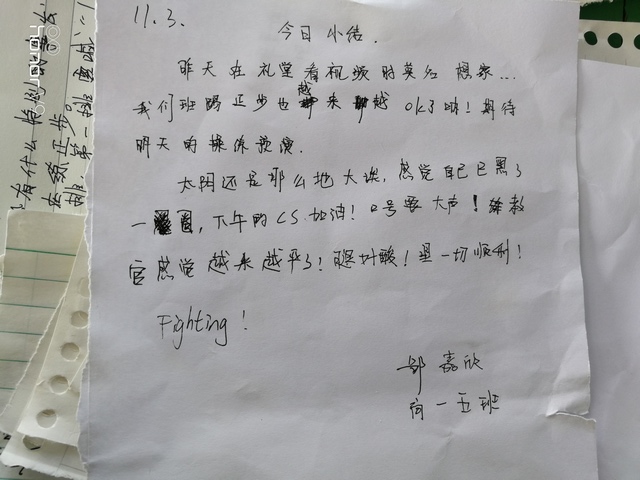 11.3.
今日小结.
昨天在礼堂看视频时莫名想家...
我们班踢正步也越来越 ok了嘛!期待
明天的操练预演.
太阳还是那么地大埃,感觉自己已黑了
一圈,下午的CS加油!口号要大声!
官感觉越来越平了!腿好酸!望一切顺利!
Fighting!
邬嘉欣
高一五班
honor
去练正步。